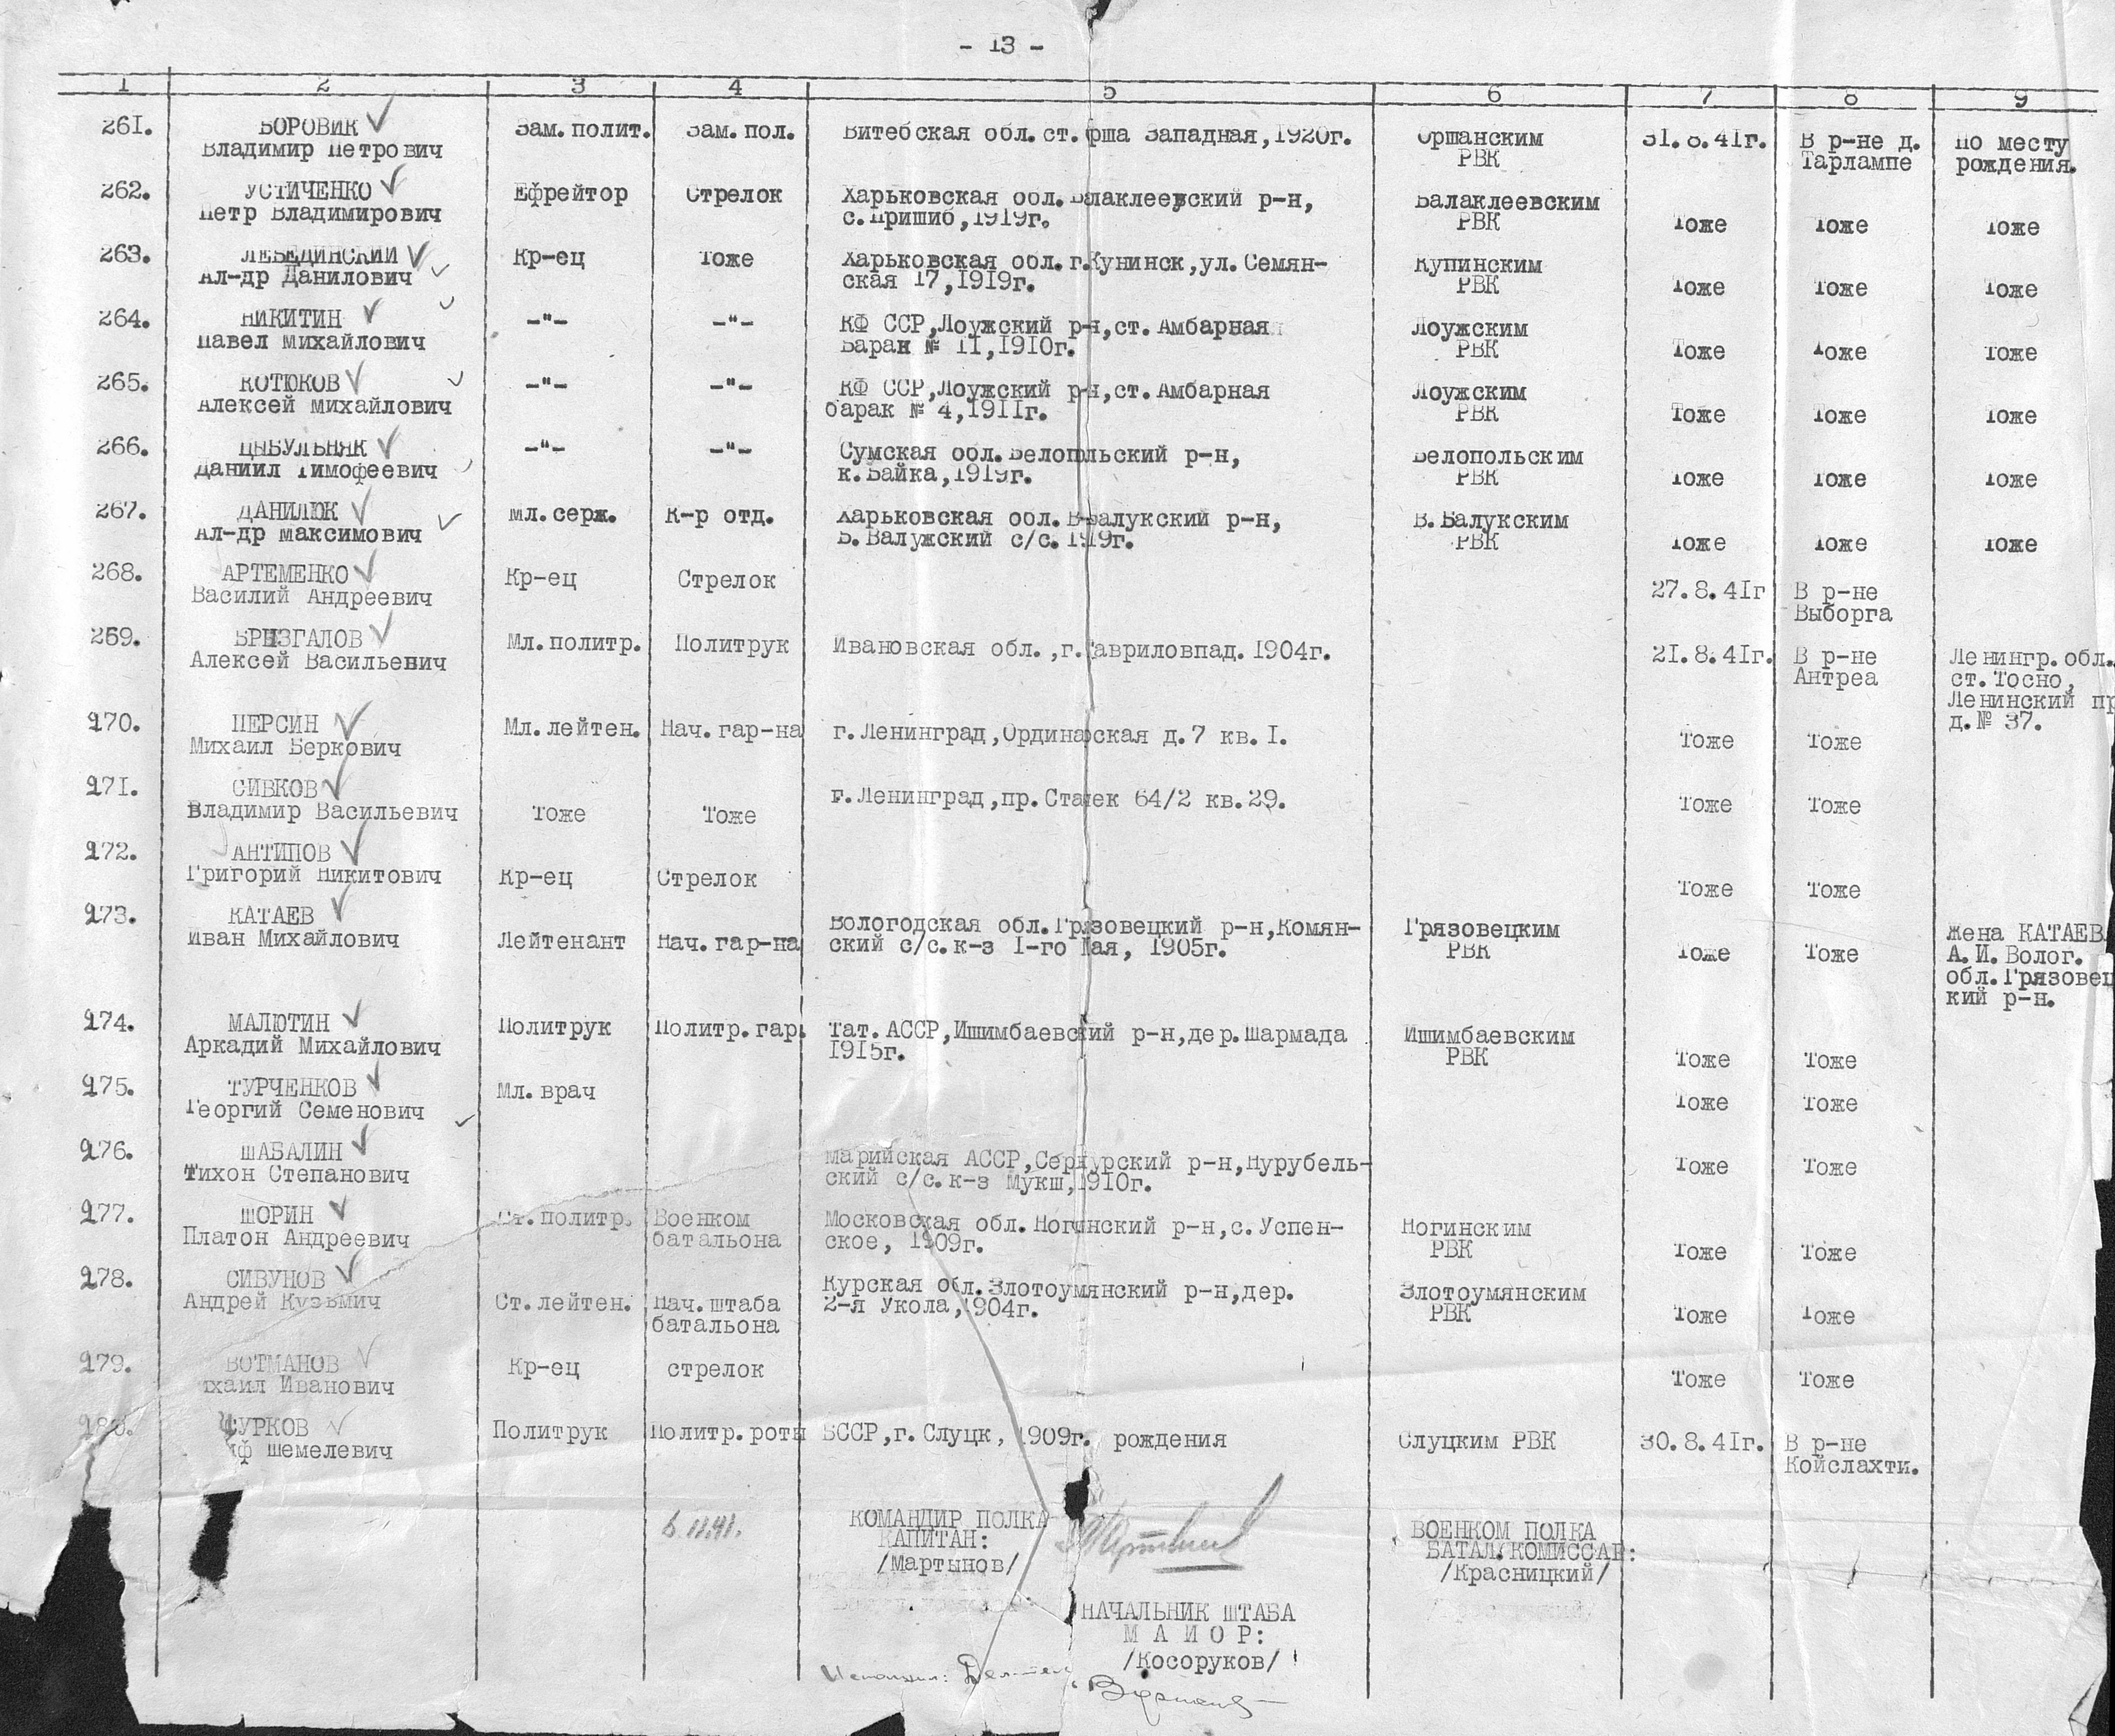 - 13 -
1 2 3 4 5 6 7 8 9
261. БОРОВИК Зам.полит. Зам.пол. Витебская обл.ст.Орша Западная,1920г. Оршанским 31.8.41г. В р-не д. По месту
Владимир Петрович РВК Тарлампе рождения.
262. УСТИЧЕНКО Ефрейтор Стрелок Харьковская обл.Балаклеевский р-н, Балаклеевским
Петр Владимирович с.Пришиб,1919г. РВК Тоже Тоже Тоже
263. ЛЕБЕДИНСКИЙ Кр-ец Тоже Харьковская обл.г.Кунинск,ул.Семян- Купинским
Ал-др Данилович ская 17,1919г. РВК Тоже Тоже Тоже
264. НИКИТИН -"- -"- КФ ССР,Лоужский р-н,ст.Амбарная Лоужским
Павел Михайлович Баран № 11,1910г. РВК Тоже Тоже Тоже
265. КОТЮКОВ -"- -"- КФ ССР,Лоужский р-н,ст.Амбарная Лоужским
Алексей Михайлович барак № 4,1911г. РВК Тоже Тоже Тоже
266. ЦЫБУЛЬНЯК -"- -"- Сумская обл.Белопольский р-н, Белопольским
Даниил Тимофеевич к.Байка,1919г. РВК Тоже Тоже Тоже
267. ДАНИЛЮК Мл.серж. К-р отд. Харьковская обл.В-Валукский р-н, В.Балукским
Ал-др Максимович Б.Валужский с/с.1919г. РВК Тоже Тоже Тоже
268. АРТЕМЕНКО Кр-ец Стрелок 27.8.41г В р-не
Василий Андреевич Выборга
269. БРЫЗГАЛОВ Мл.политр. Политрук Ивановская обл.,г.Гавриловпад.1904г. 21.8.41г. В р-не Ленингр.обл.
Алексей Васильевич Антреа ст.Тосно,
Ленинский пр
д.№ 37.
270. ПЕРСИН Мл.лейтен. Нач.гар-на г.Ленинград,Ординарская д.7 кв.1.
Михаил Беркович Тоже Тоже
271. СИВКОВ г.Ленинград,пр.Стачек 64/2 кв.29.
Владимир Васильевич Тоже Тоже Тоже Тоже
272. АНТИПОВ
Григорий Никитович Кр-ец Стрелок Тоже Тоже
273. КАТАЕВ Вологодская обл.Грязовецкий р-н,Комян- Грязовецким Жена КАТАЕВ
Иван Михайлович Лейтенант Нач.гар-на ский с/с.к-з 1-го Мая, 1905г. РВК Тоже Тоже А.И.Волог.
обл.Грязовец
кий р-н.
274. МАЛЮТИН Политрук Политр.гар. Тат.АССР,Ишимбаевский р-н,дер.Шармада Ишимбаевским
Аркадий Михайлович 1915г. РВК Тоже Тоже
275. ТУРЧЕНКОВ Мл.врач
Георгий Семенович Тоже Тоже
276. ШАБАЛИН Марийская АССР,Сернурский р-н,Нурубель-
Тихон Степанович ский с/с.к-з Мукш,1910г. Тоже Тоже
277. ШОРИН Ст.политр. Военком Московская обл.Ногинский р-н,с.Успен- Ногинским
Платон Андреевич батальона ское, 1909г. РВК Тоже Тоже
278. СИВУНОВ Курская обл.Злотоумянский р-н,дер. Злотоумянским
Андрей Кузьмич Ст.лейтен. Нач.штаба 2-я Укола,1904г. РВК Тоже Тоже
батальона
279. ВОТМАНОВ Кр-ец стрелок Тоже Тоже
ихаил Иванович
280. ШУРКОВ Политрук Политр.роты БССР,г.Слуцк, 1909г. рождения Слуцким РВК 30.8.41г. В р-не
иф Шемелевич Койслахти.
6.11.41.
КОМАНДИР ПОЛКА ВОЕНКОМ ПОЛКА
КАПИТАН: БАТАЛ.КОМИССАР:
/Мартынов/ /Красницкий/
НАЧАЛЬНИК ШТАБА
МАЙОР:
/Косоруков/